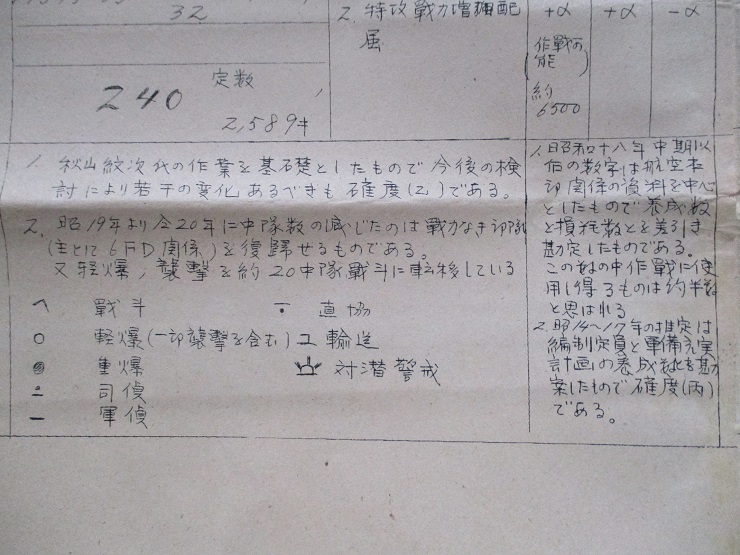 32
2. 特攻戰力増強配
属
+α +α -α
(作戰可
能)
約
6500
240
定数
2,589キ
1. 秋山紋次代の作業を基礎としたもので今後の検
討により若干の変化あるべきも確度(乙)である。
2. 昭19年より仝20年に中隊数の減じたのは戰力なき部隊
(主として6FD関係)を復帰せるものである。
又軽爆、襲撃を約20中隊戰斗に転移している
戰斗
直協
軽爆(一部襲撃を含む)
輸送
重爆
対潜警戒
司偵
軍偵
1. 昭和十八年中期以
后の数字は航空本
部関係の資料を中心
としたもので養成数
と損耗数とを差引き
勘定したものである。
この数の中作戰に使
用し得るものは約半数
と思はれる
2. 昭14~17年の推定は
編制定員と軍備充実
計画の養成数を勘
案したもので確度(丙)
である。